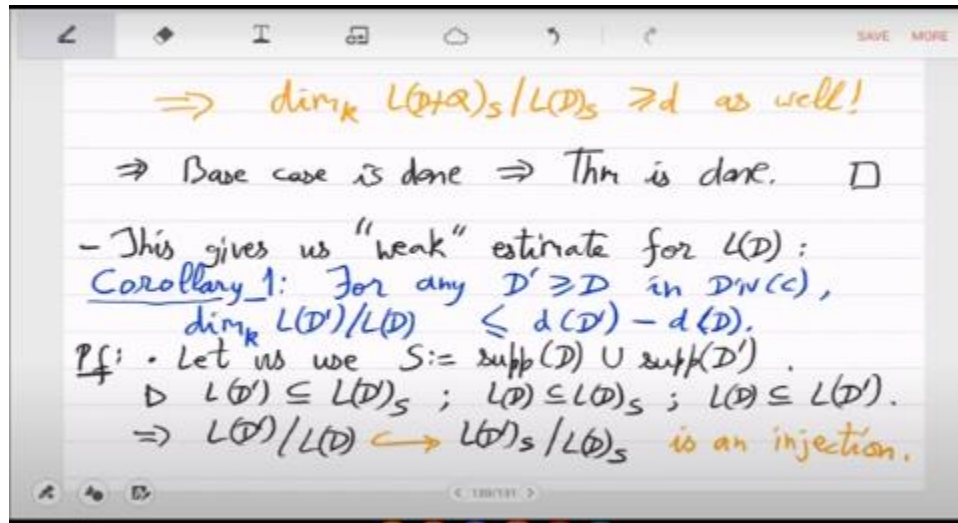 SAVE MORE
⇒ dim_k L(D+Q)_S / L(D)_S ≥ d as well!
⇒ Base case is done ⇒ Thm is done. □
- This gives us "weak" estimate for L(D) :
Corollary_1: For any D' ≥ D in Div(C),
dim_k L(D')/L(D) ≤ d(D') - d(D).
Pf: • Let us use S := supp(D) ∪ supp(D') .
▷ L(D') ⊆ L(D')_S ; L(D) ⊆ L(D)_S ; L(D) ⊆ L(D').
⇒ L(D')/L(D) ↪ L(D')_S / L(D)_S is an injection.